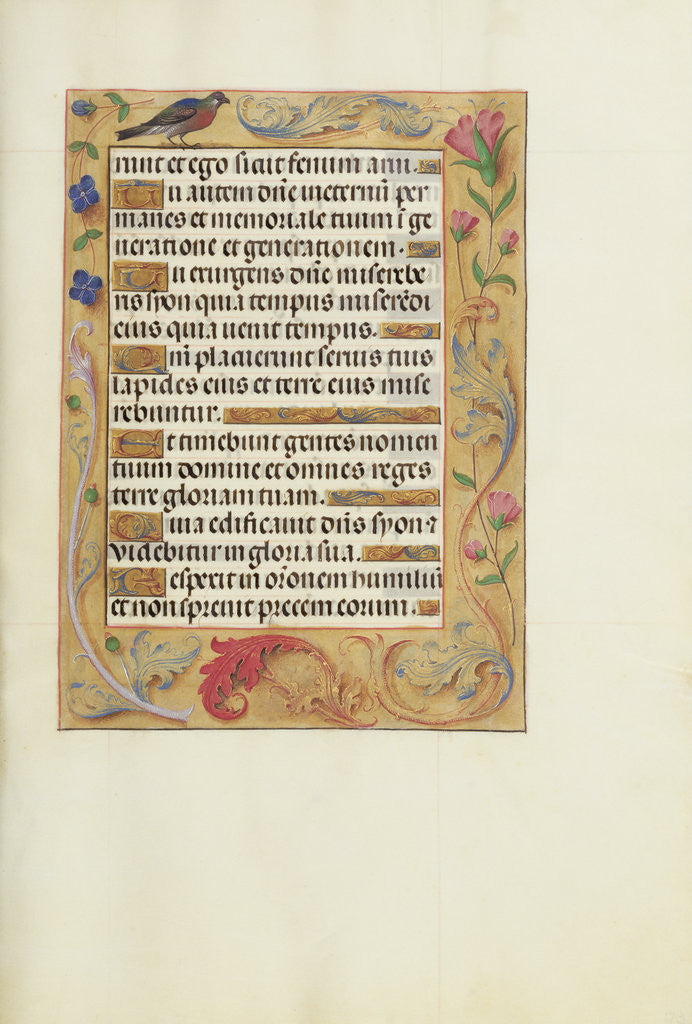 nnut et ego sicut fenum arui.
Tu autem dñe ineternũ per
manes et memoriale tuum ĩ ge
neratione et generationem.
Tu exurgens dñe misereбе
ris syon quia tempus miserẽdi
eius quia uenit tempus.
Qm̃ placuerunt seruis tuis
lapides eius et terre eius mise
rebuntur.
Et timebunt gentes nomen
tuum domine et omnes reges
terre gloriam tuam.
Quia edificauit dñs syon ⁊
videbitur in gloria sua.
Respexit in orõnem humiliũ
et non spreuit precem eorum.